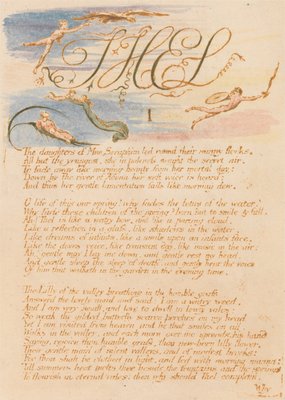 THEL
I
The daughters of Mne Seraphim led round their sunny flocks,
All but the youngest, she in paleness sought the secret air,
To fade away like morning beauty from her mortal day:
Down by the river of Adona her soft voice is heard:
And thus her gentle lamentation falls like morning dew.
O life of this our spring! why fades the lotus of the water?
Why fade these children of the spring? born but to smile & fall.
Ah! Thel is like a watry bow, and like a parting cloud,
Like a reflection in a glass, like shadows in the water,
Like dreams of infants, like a smile upon an infants face,
Like the doves voice, like transient day, like music in the air:
Ah! gentle may I lay me down, and gentle rest my head,
And gentle sleep the sleep of death, and gentle hear the voice
Of him that walketh in the garden in the evening time.
The Lilly of the valley breathing in the humble grass
Answerd the lovely maid and said: I am a watry weed,
And I am very small, and love to dwell in lowly vales;
So weak the gilded butterfly scarce perches on my head
Yet I am visited from heaven and he that smiles on all
Walks in the valley, and each morn over me spreads his hand
Saying, rejoice thou humble grass, thou new-born lilly flower,
Thou gentle maid of silent valleys, and of modest brooks:
For thou shalt be clothed in light, and fed with morning manna:
Till summers heat melts thee beside the fountains and the springs
To flourish in eternal vales: then why should Thel complain,
Why